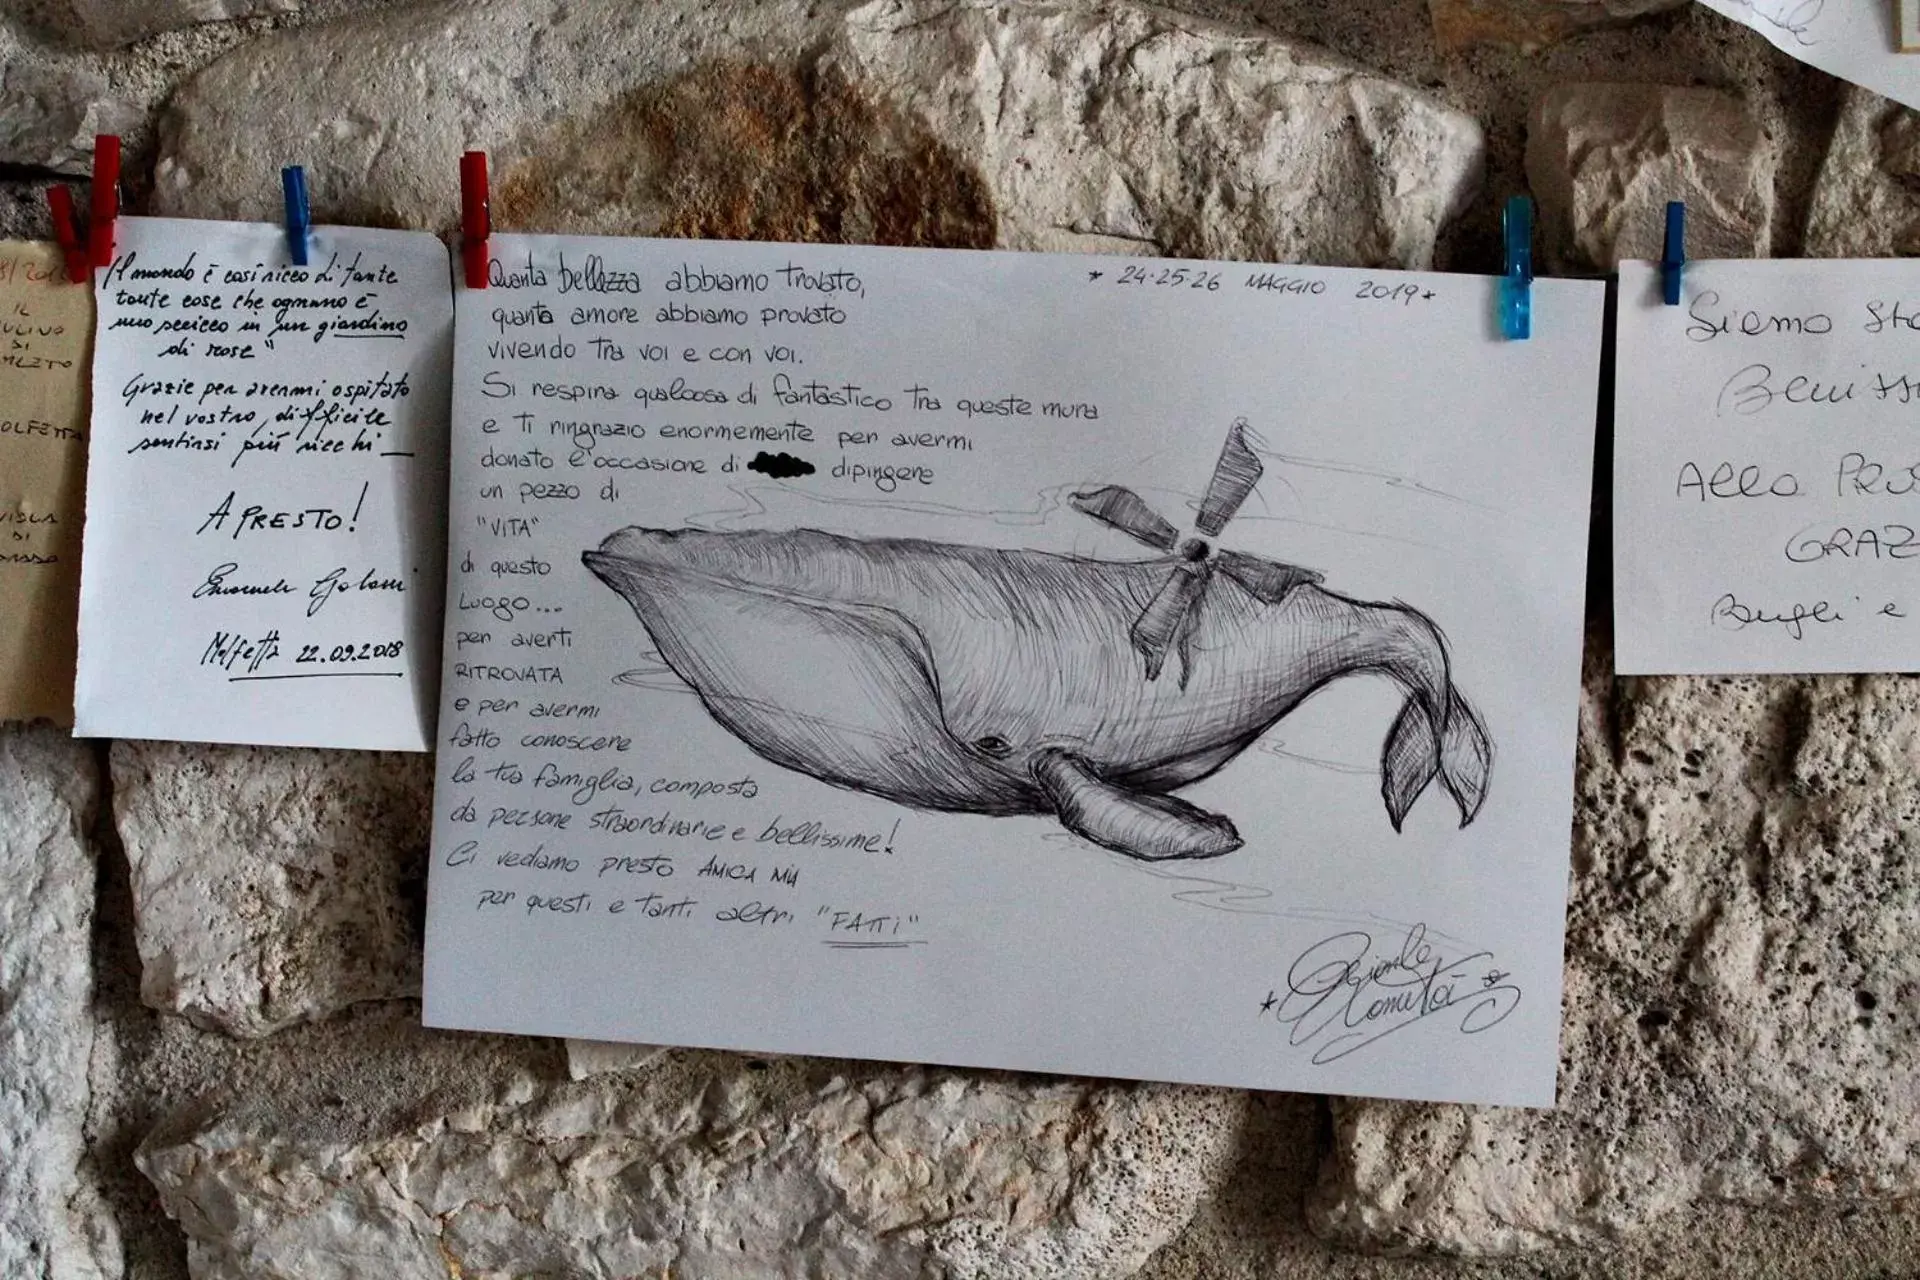 IL
DI
"Il mondo è così ricco di tante
tante cose che ognuno è
uno sceicco in un giardino
di rose"
Grazie per avermi ospitato
nel vostro, difficile
sentirsi più ricchi
A PRESTO!
Molfetta 22.09.2018
Quanta bellezza abbiamo trovato,
quanta amore abbiamo provato
vivendo tra voi e con voi.
Si respira qualcosa di fantastico tra queste mura
e ti ringrazio enormemente per avermi
donato l'occasione di dipingere
un pezzo di
"VITA"
di questo
Luogo...
per averti
RITROVATA
e per avermi
fatto conoscere
la tua famiglia, composta
da persone straordinarie e bellissime!
Ci vediamo presto AMICA MIA
per questi e tanti altri "FATTI"
* 24·25·26 MAGGIO 2019 *
Siamo
Alla
GRAZ
e